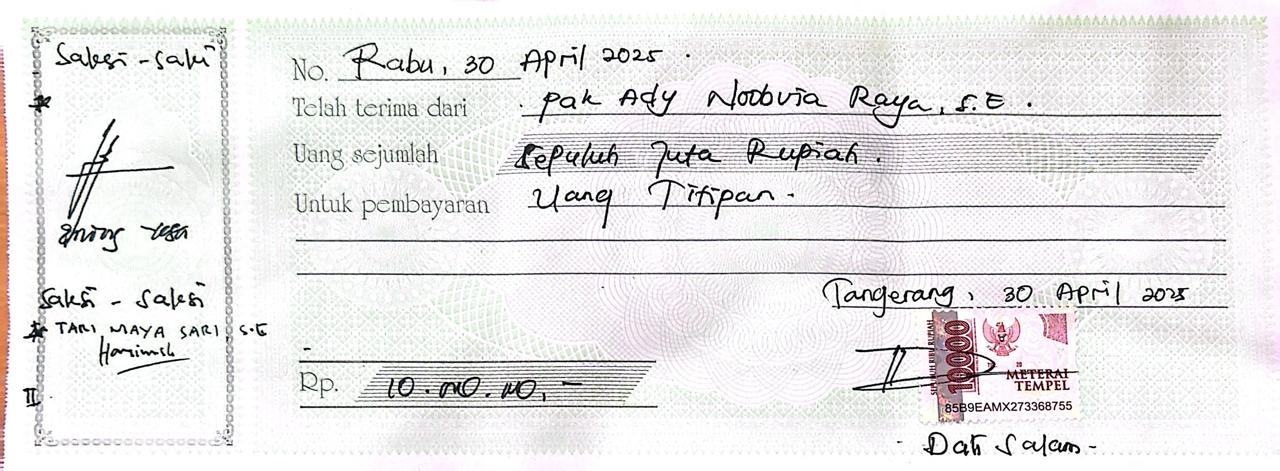 Saksi - saksi
No. Rabu, 30 April 2025.
Telah terima dari Pak Ady Noobvia Raya, S.E.
Uang sejumlah Sepuluh Juta Rupiah.
Untuk pembayaran Uang Titipan.
Saksi - Saksi
TARI MAYA SARI, S.E
II
Tangerang, 30 April 2025
SEPULUH RIBU RUPIAH
10000
METERAI
TEMPEL
85B9EAMX273368755
Rp. 10.000.000,-
- Dati Salam -